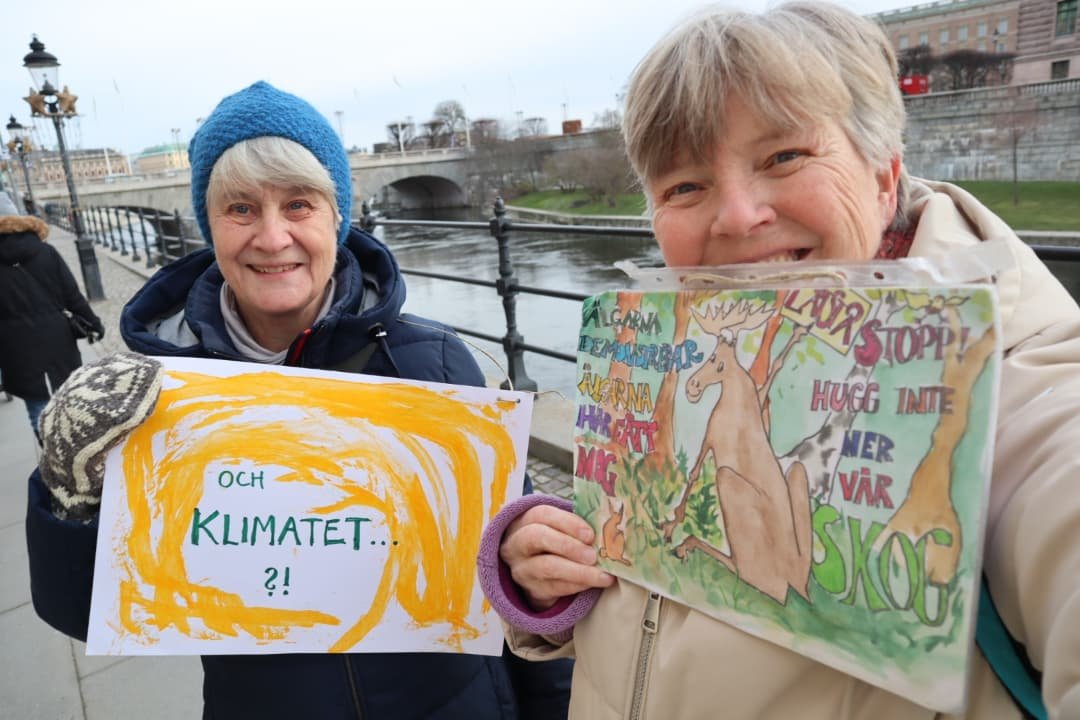 OCH
KLIMATET...
?!
ÄLGARNA
DEMONSTRERAR
ÄLGARNA
HAR FÅTT
NOG
STOPP!
HUGG INTE
NER
VÅR
SKOG